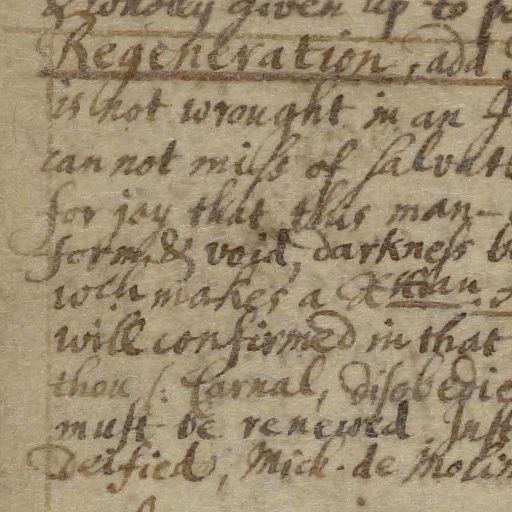 & wholly given up to
Regeneration, add
is not wrought in an
can not miss of salvat
for jay that this man
form, & void, darkness b
wch makes a Xtian
will confirmed in that
thou (: Carnal, disobedie
must be renewed Inst
Deified, Mich. de Molin